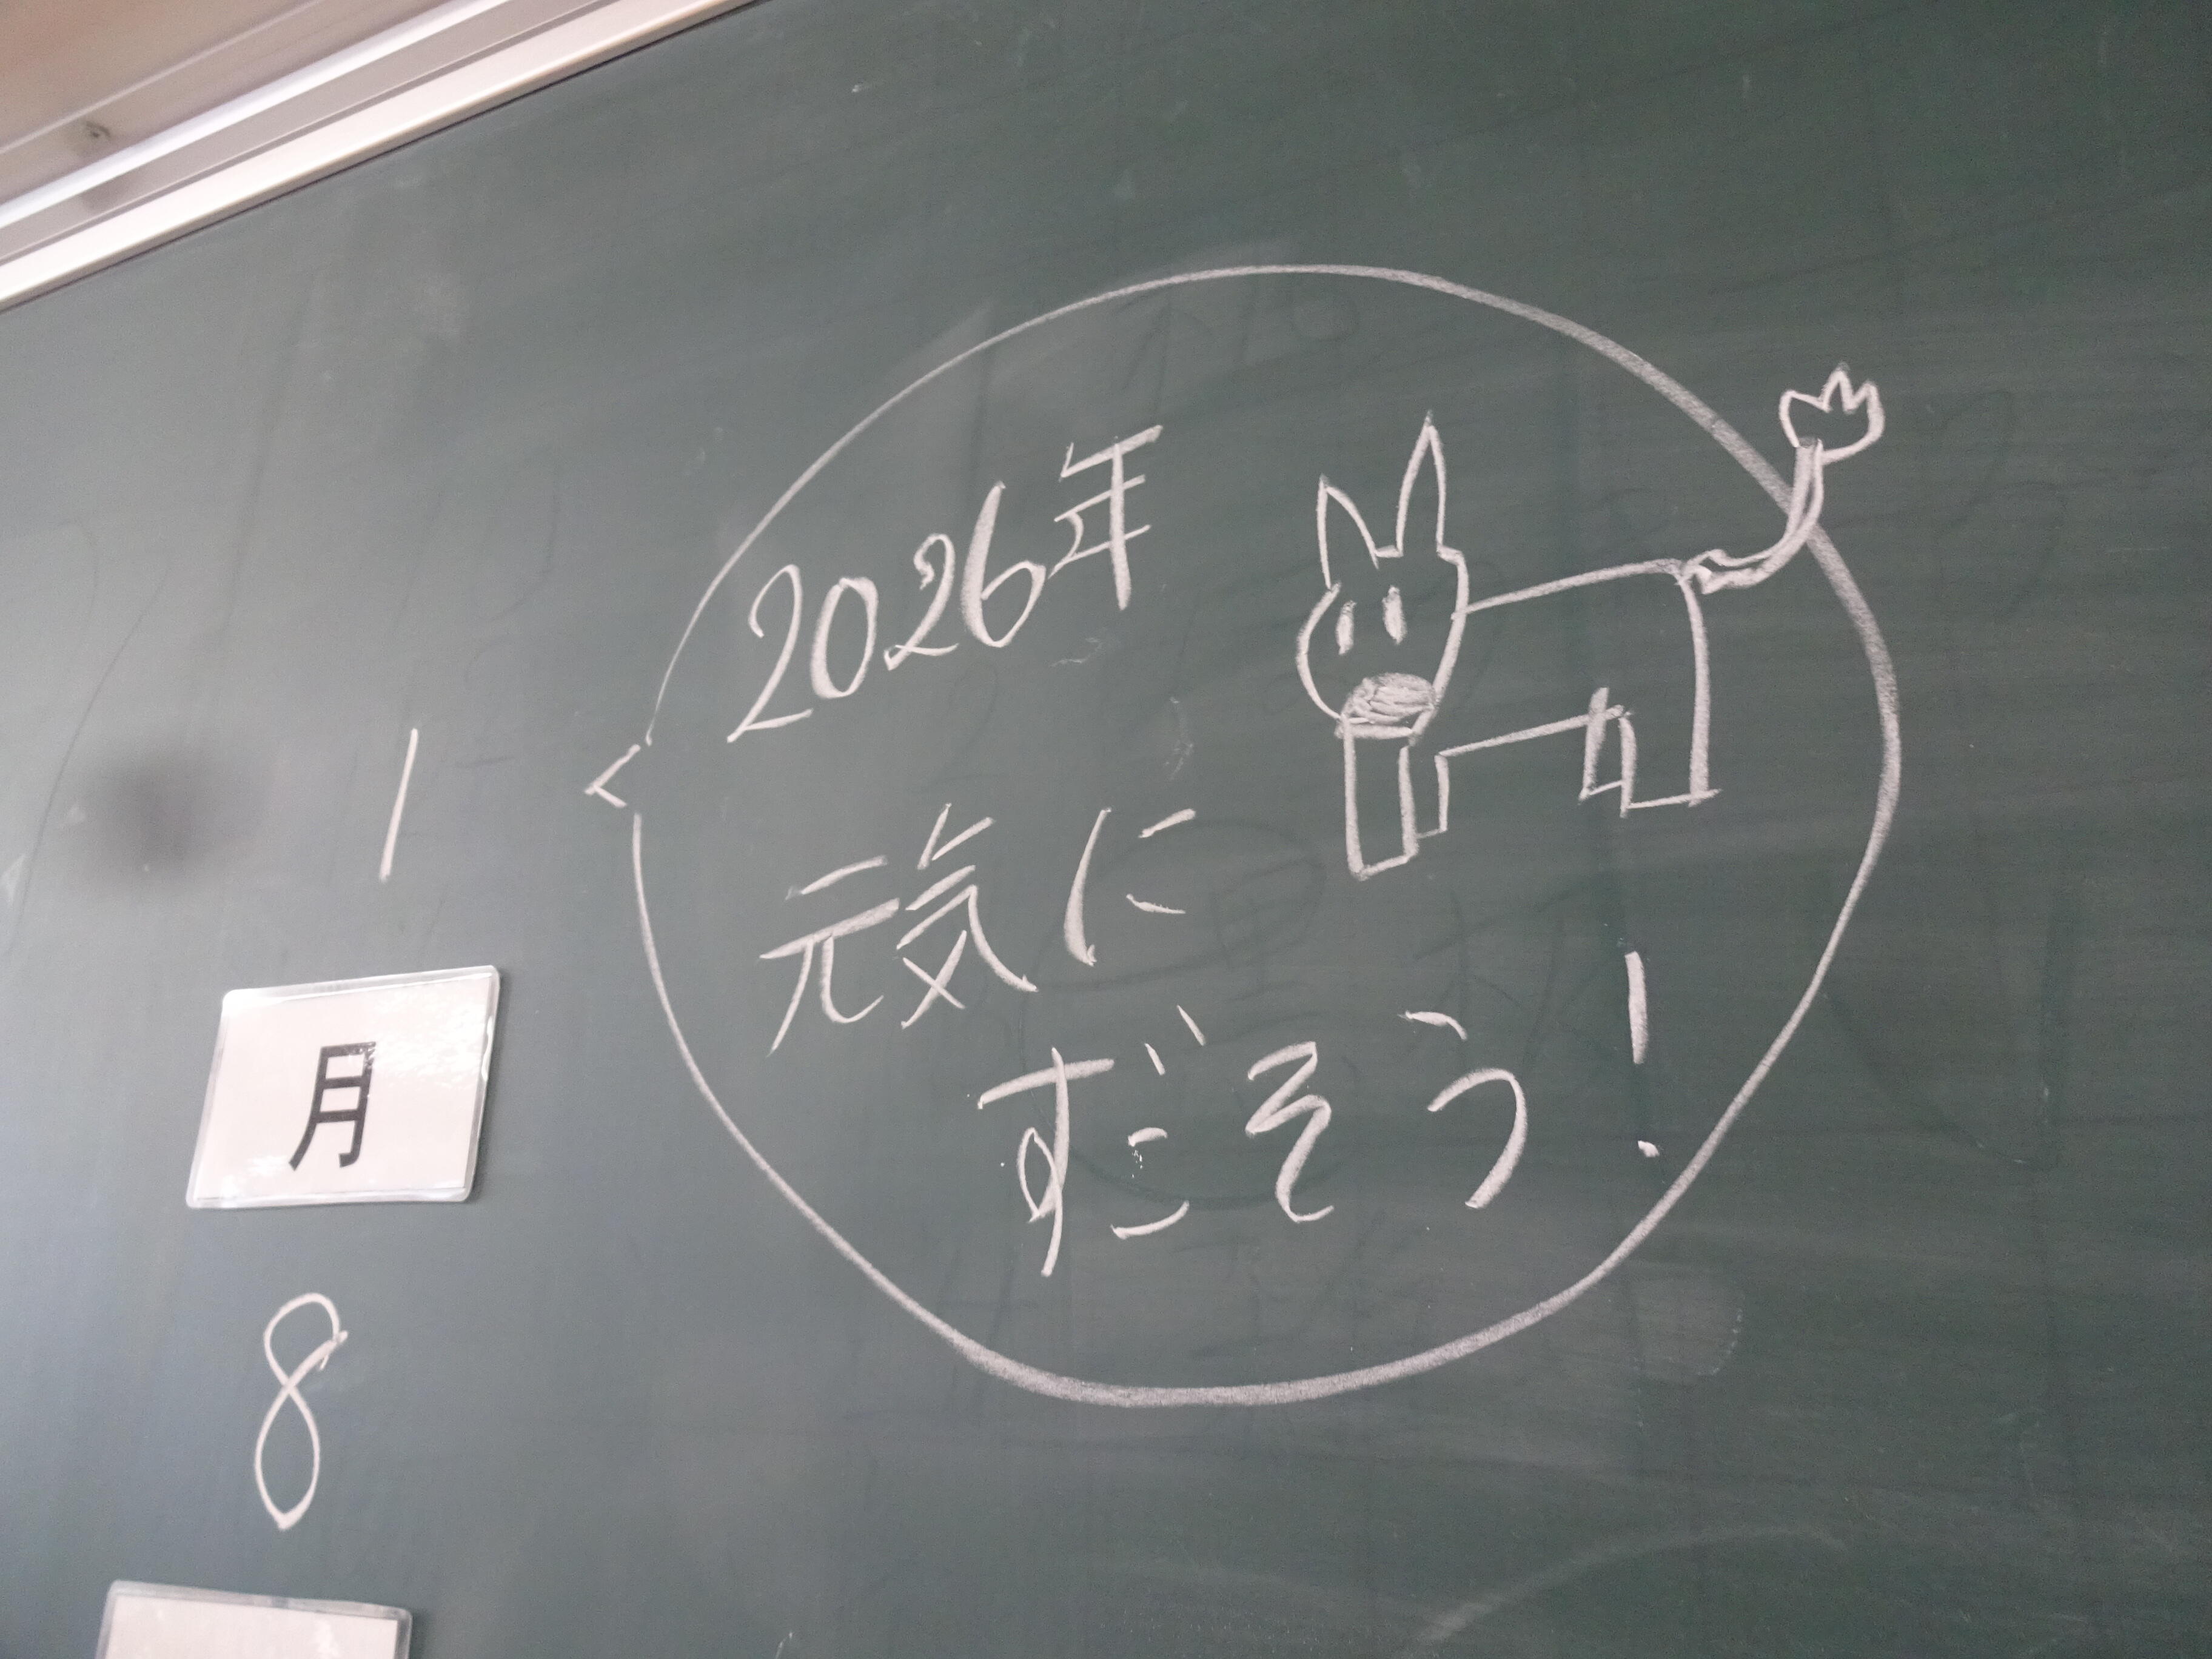 1
月
8
2026年
元気に
すごそう!